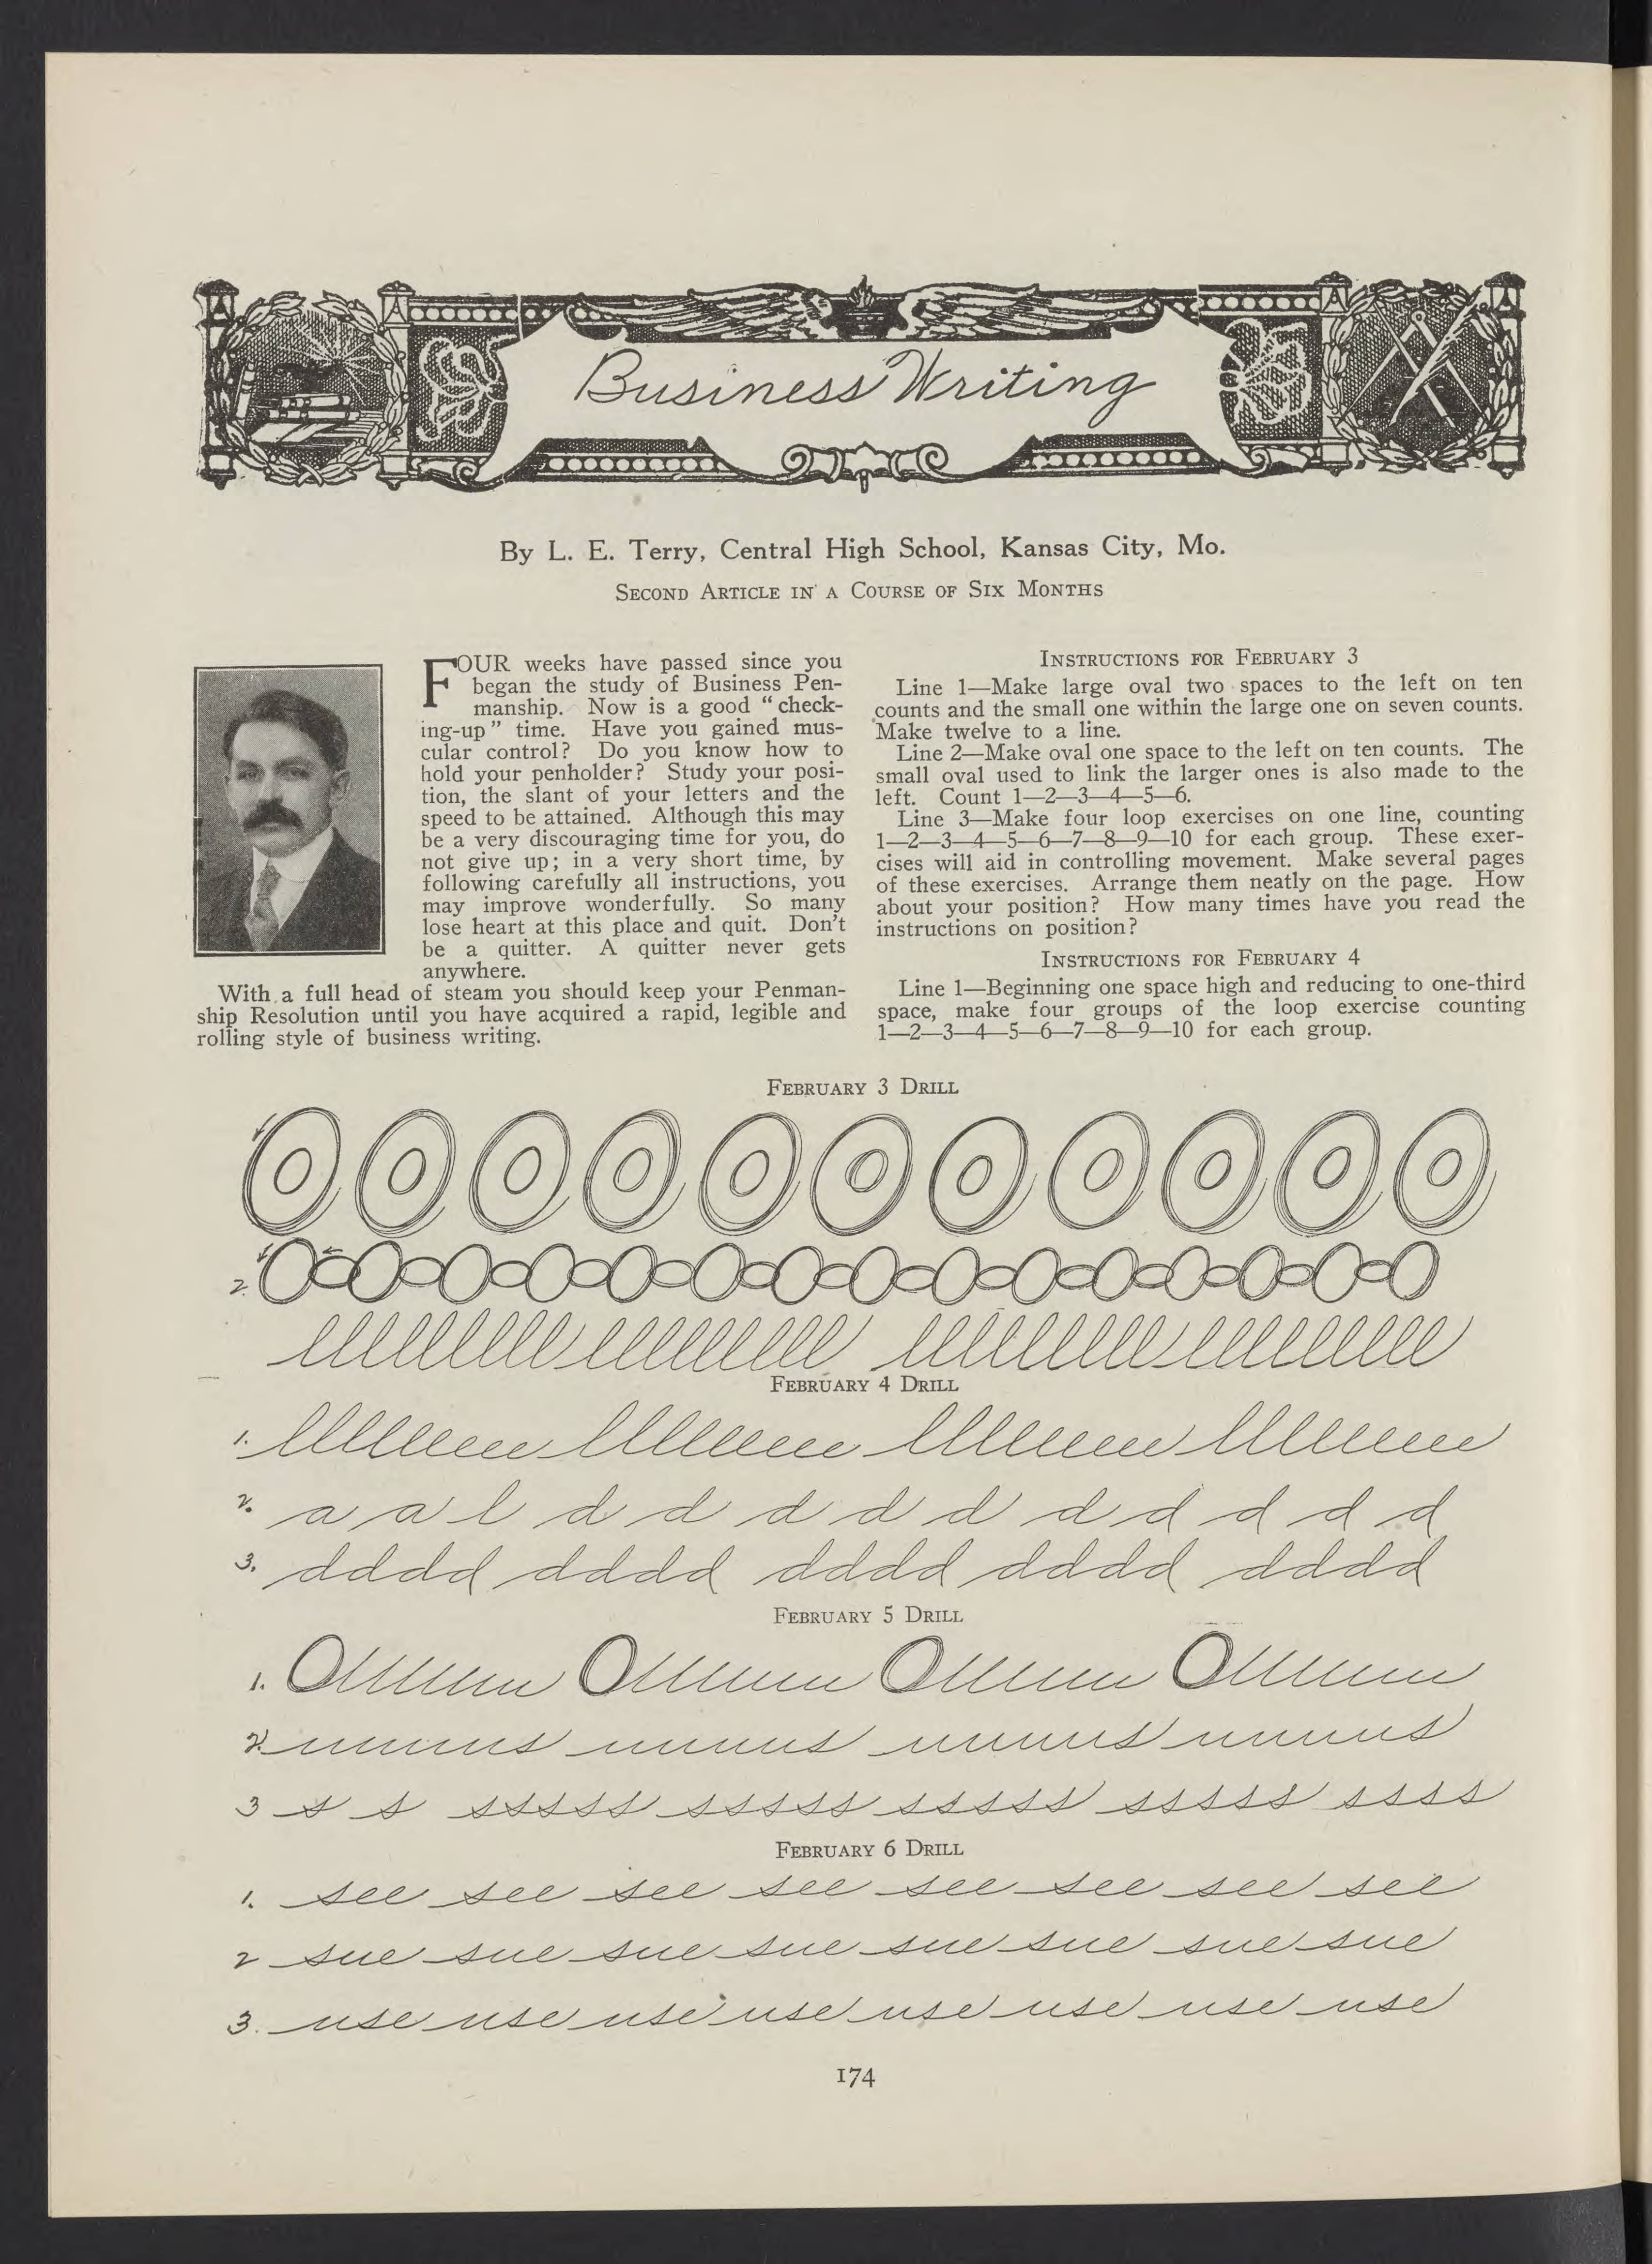 Business Writing
By L. E. Terry, Central High School, Kansas City, Mo.
Second Article in a Course of Six Months
FOUR weeks have passed since you
began the study of Business Pen-
manship. Now is a good "check-
ing-up" time. Have you gained mus-
cular control? Do you know how to
hold your penholder? Study your posi-
tion, the slant of your letters and the
speed to be attained. Although this may
be a very discouraging time for you, do
not give up; in a very short time, by
following carefully all instructions, you
may improve wonderfully. So many
lose heart at this place and quit. Don't
be a quitter. A quitter never gets
anywhere.
With a full head of steam you should keep your Penman-
ship Resolution until you have acquired a rapid, legible and
rolling style of business writing.
Instructions for February 3
Line 1—Make large oval two spaces to the left on ten
counts and the small one within the large one on seven counts.
Make twelve to a line.
Line 2—Make oval one space to the left on ten counts. The
small oval used to link the larger ones is also made to the
left. Count 1—2—3—4—5—6.
Line 3—Make four loop exercises on one line, counting
1—2—3—4—5—6—7—8—9—10 for each group. These exer-
cises will aid in controlling movement. Make several pages
of these exercises. Arrange them neatly on the page. How
about your position? How many times have you read the
instructions on position?
Instructions for February 4
Line 1—Beginning one space high and reducing to one-third
space, make four groups of the loop exercise counting
1—2—3—4—5—6—7—8—9—10 for each group.
February 3 Drill
2.
February 4 Drill
1.
2. a a l d d d d d d d d d d
3. dddd dddd dddd dddd dddd
February 5 Drill
1.
2.
3 s s sssss sssss sssss sssss ssss
February 6 Drill
1. see see see see see see see see
2 sue sue sue sue sue sue sue sue
3. use use use use use use use use
174